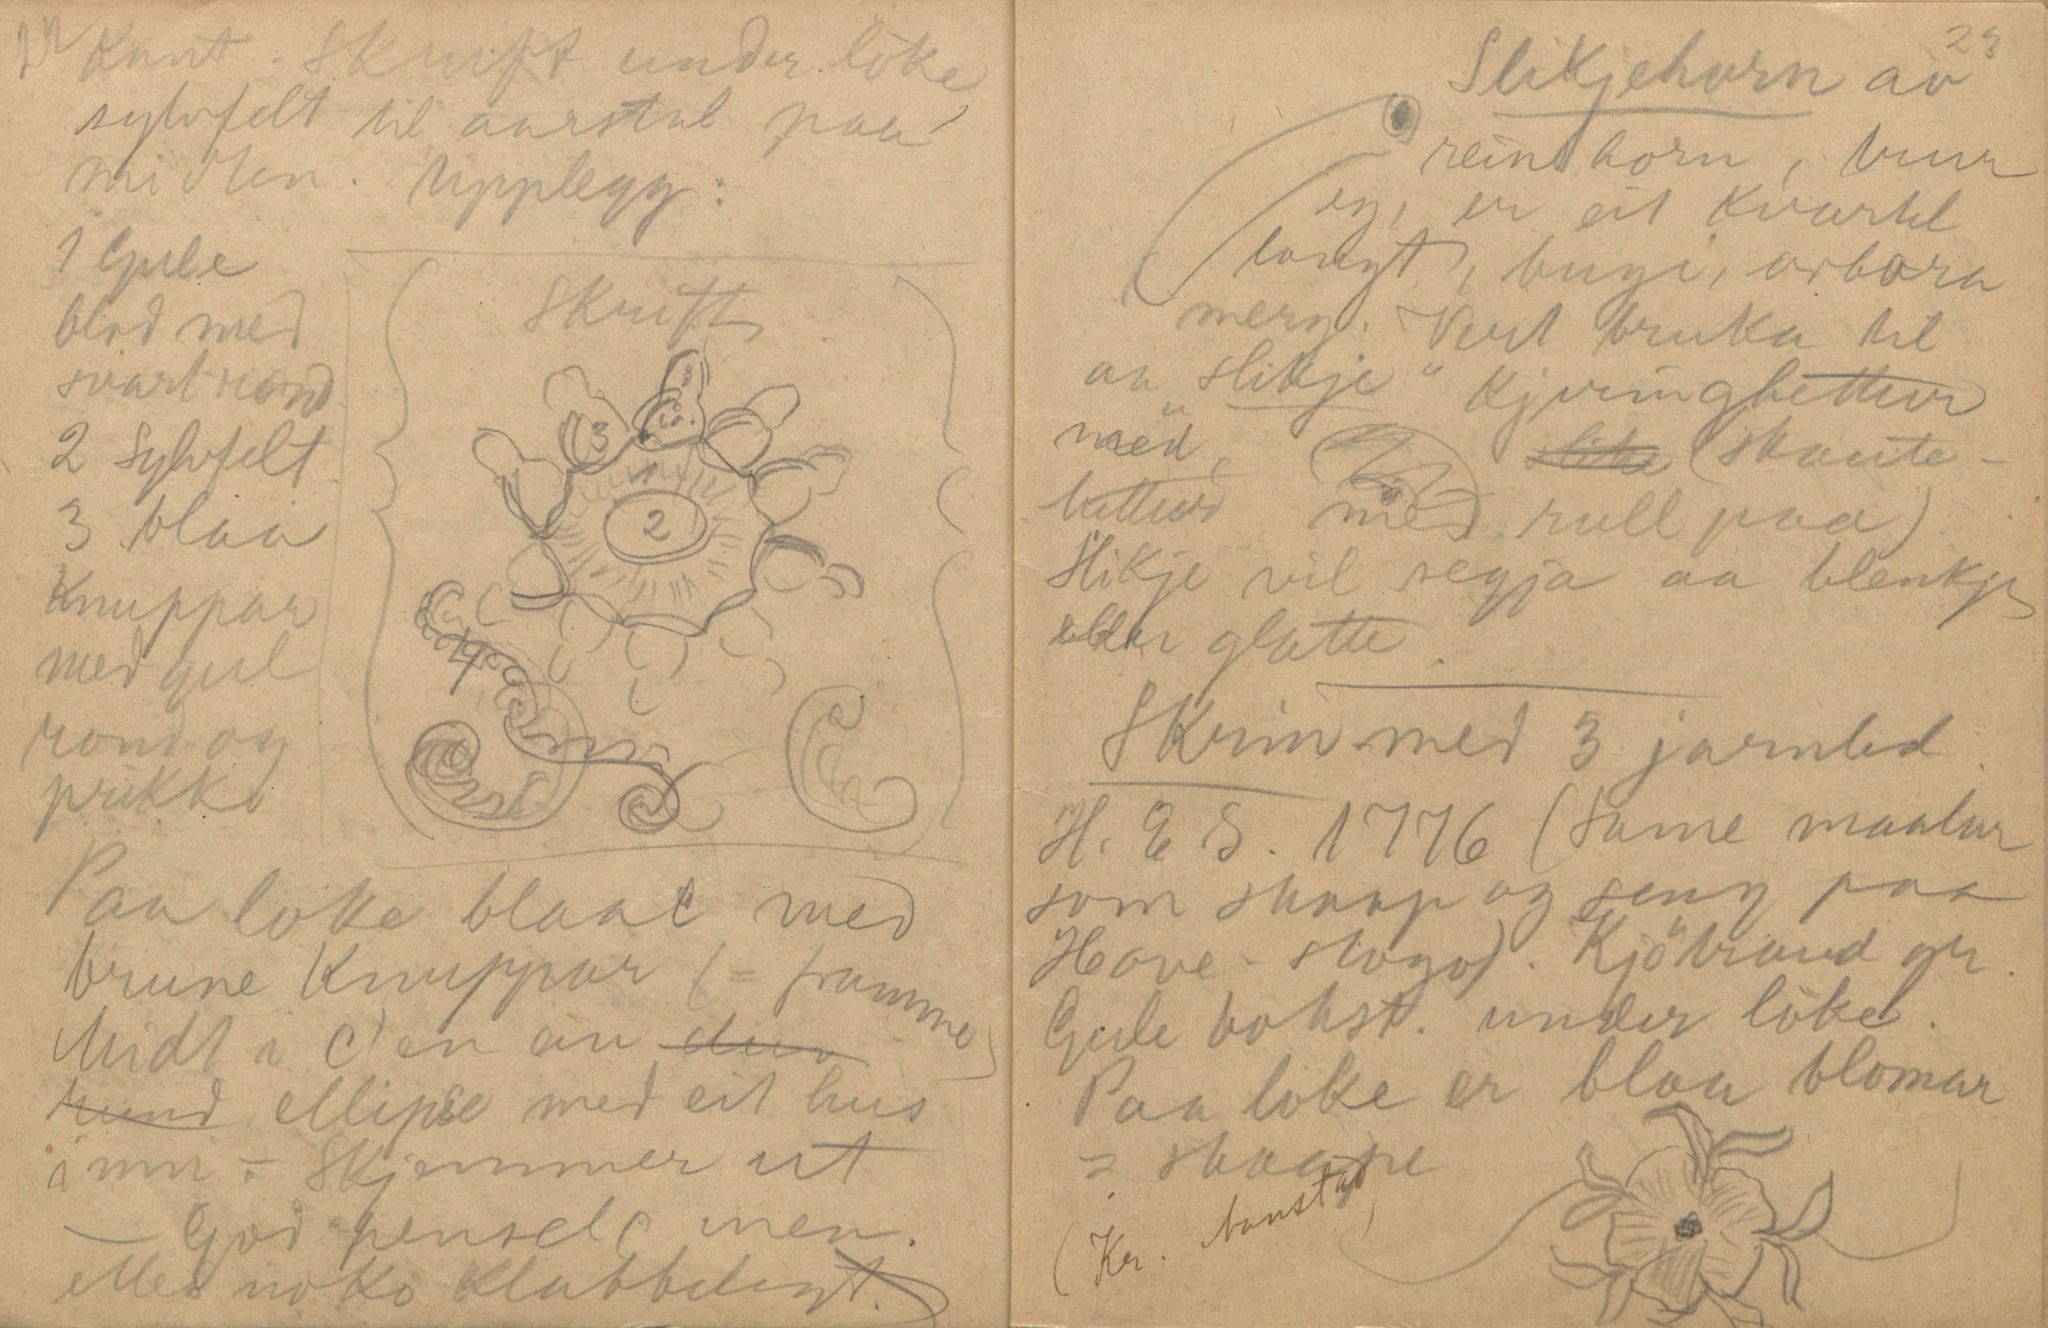 Kant. Skrift under loke
sylvfelt til aarstal paa
midten. Upplegg:
1 Gule
blad med
svart rond
2 Sylvfelt
3 blaa
Knuppar
med gul
rond og
prikko
Skrift
3
1
2
4
Paa loke blaae med
brune Knuppar (= framme)
Midt i den ein
rund ellipse med eit hus
inni - Skjemmer ut
— God pensel men
elles noko klabbelegt.
23
Slikjehorn av
reinshorn,
er eit kvartel
langt, bugi, utbora
merg. Vert bruka til
aa "slikje" kjeringhettur
med (skaute-
hettur med rull paa)
Slikje vil segja aa blenkje
eller glatte.
Skrin med 3 jarnbd.
H. E S. 1776 (Same maalar
som skaap og seng paa
Hove-stogo).
Gule bokst. under löke.
Paa loke er blaa blomar
= skaape
(Kr.